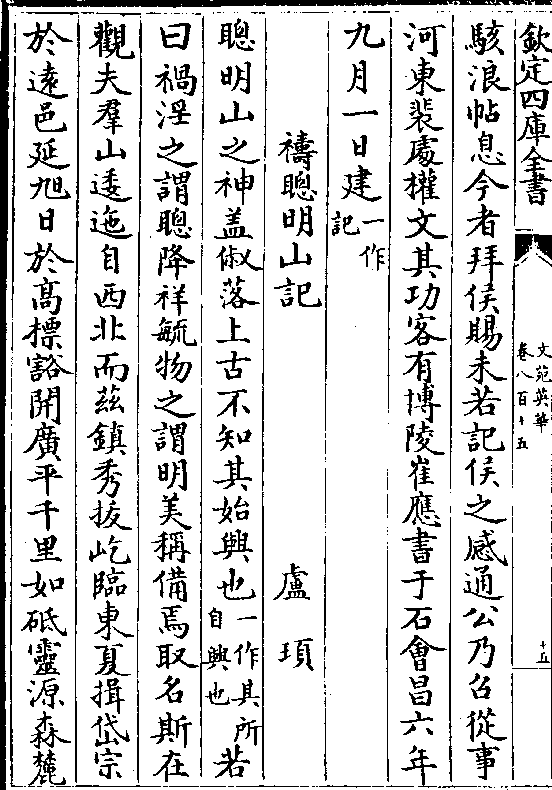 欽定四庫全書
文苑英華
卷八百十五
十五
駭浪帖息今者拜侯賜未若記侯之感通公乃召從事
河東裴處權文其功客有博陵崔應書于石會昌六年
九月一日建一作記
禱聰明山記 盧頊
聰明山之神盖俶落上古不知其始興也一作其所自興也若
曰禍淫之謂聰降祥毓物之謂明美稱備焉取名斯在
觀夫羣山逶迤自西北而茲鎮秀拔屹臨東夏揖岱宗
於遠邑延旭日於髙標豁開廣平千里如砥靈源森麓